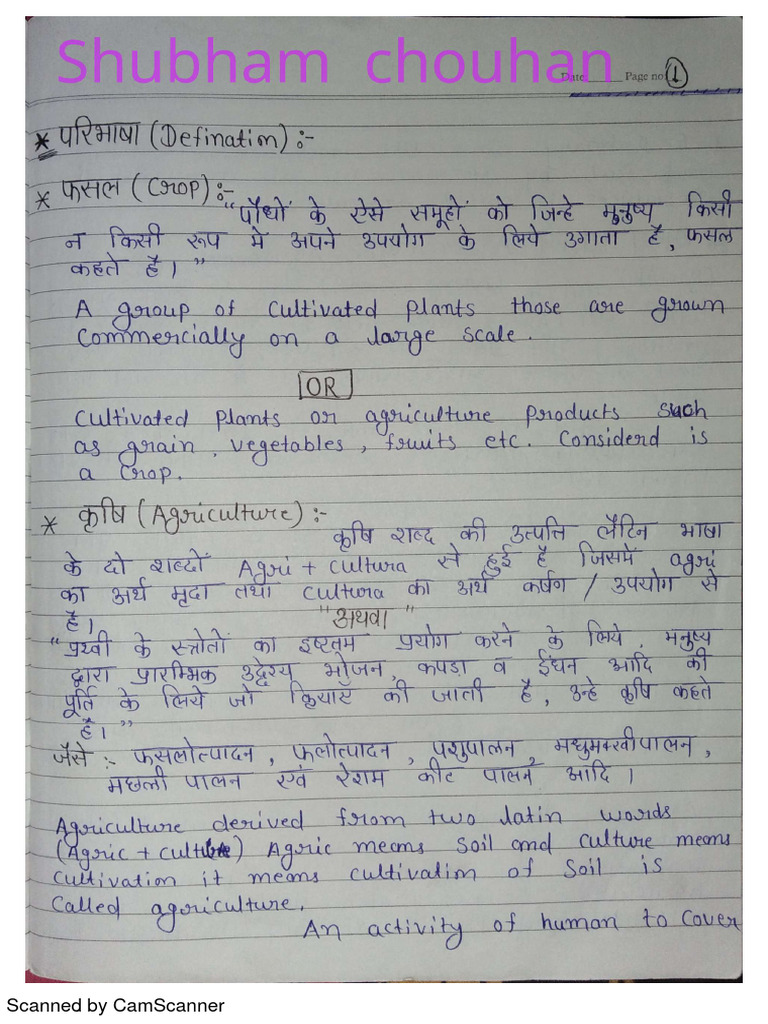 Shubham chouhan
Date Page no 1
* परिभाषा (Defination) :-
* फसल (Crop) :-
"पौधों के ऐसे समूहों को जिन्हे मुनुष्य किसी
न किसी रूप मे अपने उपयोग के लिये उगाता है, फसल
कहते है।"
A group of cultivated plants those are grown
Commercially on a large scale.
OR
Cultivated plants or agriculture products such
as grain, vegetables, fruits etc. Considerd is
a crop.
* कृषि (Agriculture) :-
कृषि शब्द की उत्पत्ति लैटिन भाषा
के दो शब्दों Agri + cultura से हुई है जिसमें agri
का अर्थ मृदा तथा cultura का अर्थ कर्षण / उपयोग से
है।
"अथवा"
"प्रथ्वी के स्त्रोतों का इष्टतम प्रयोग करने के लिये, मनुष्य
द्वारा प्रारम्भिक उद्देश्य भोजन, कपड़ा व ईंधन आदि की
पूर्ति के लिये जो क्रियाएँ की जाती है, उन्हे कृषि कहते
है।"
जैसे :- फसलोत्पादन, फलोत्पादन, पशुपालन, मधुमक्खीपालन,
मछली पालन एवं रेशम कीट पालन आदि।
Agriculture derived from two latin words
(Agric + culture) Agric means soil and culture means
cultivation it means cultivation of soil is
called agriculture.
An activity of human to cover
Scanned by CamScanner